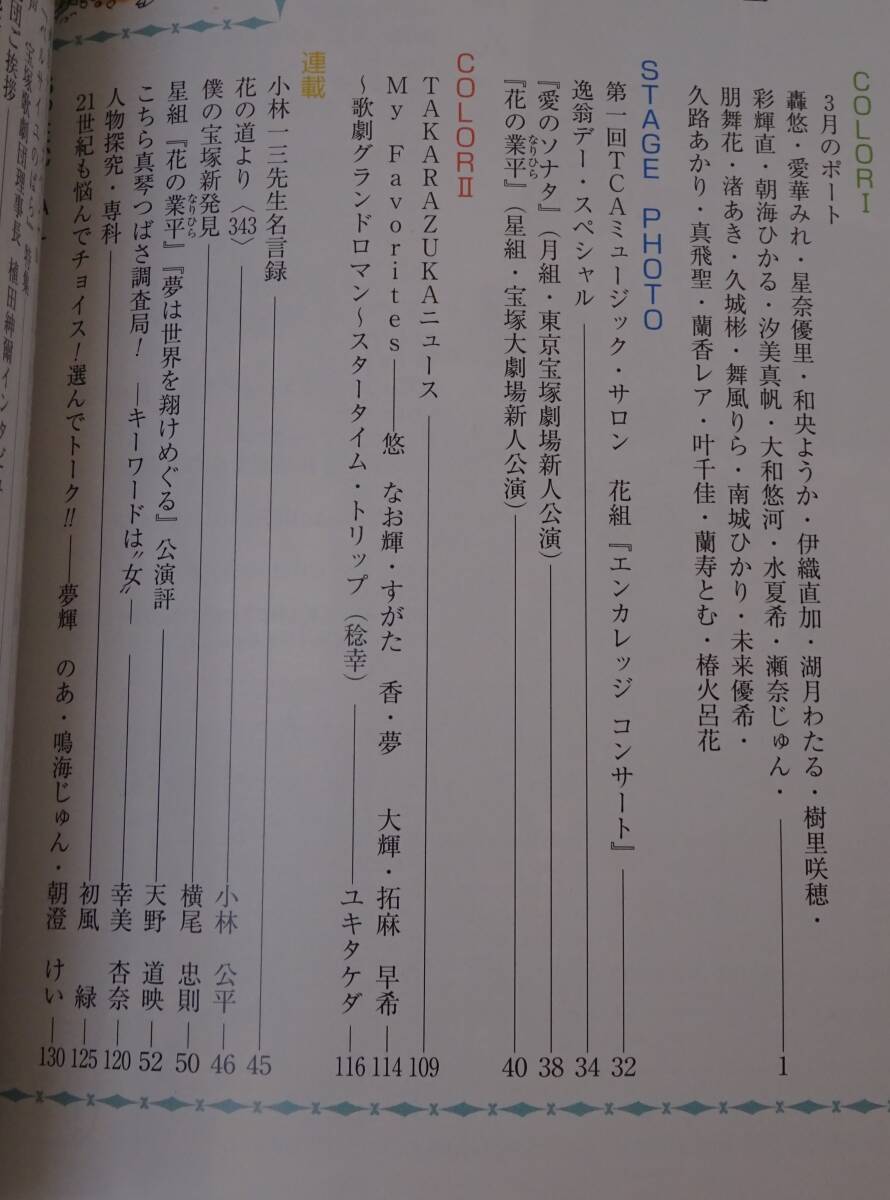 COLOR I
3月のポート
轟悠・愛華みれ・星奈優里・和央ようか・伊織直加・湖月わたる・樹里咲穂・
彩輝直・朝海ひかる・汐美真帆・大和悠河・水夏希・瀬奈じゅん・
朋舞花・渚あき・久城彬・舞風りら・南城ひかり・未来優希・
久路あかり・真飛聖・蘭香レア・叶千佳・蘭寿とむ・椿火呂花
1
STAGE PHOTO
第一回TCAミュージック・サロン 花組『エンカレッジ コンサート』 32
逸翁デー・スペシャル 34
『愛のソナタ』(月組・東京宝塚劇場新人公演) 38
『花の業平なりひら』(星組・宝塚大劇場新人公演) 40
COLOR II
TAKARAZUKAニュース 109
My Favorites――悠 なお輝・すがた 香・夢 大輝・拓麻 早希 114
~歌劇グランドロマン~スタータイム・トリップ(稔幸) ユキタケダ 116
連載
小林一三先生名言録 45
花の道より〈343〉 小林 公平 46
僕の宝塚新発見 横尾 忠則 50
星組『花の業平なりひら』『夢は世界を翔けめぐる』公演評 天野 道映 52
こちら真琴つばさ調査局! ―キーワードは〝女〟― 幸美 杏奈 120
人物探究・専科 初風 緑 125
21世紀も悩んでチョイス!選んでトーク!!――夢輝 のあ・鳴海じゅん・朝澄 けい 130
宝塚歌劇団理事長 植田紳爾インタビュ
団ご挨拶